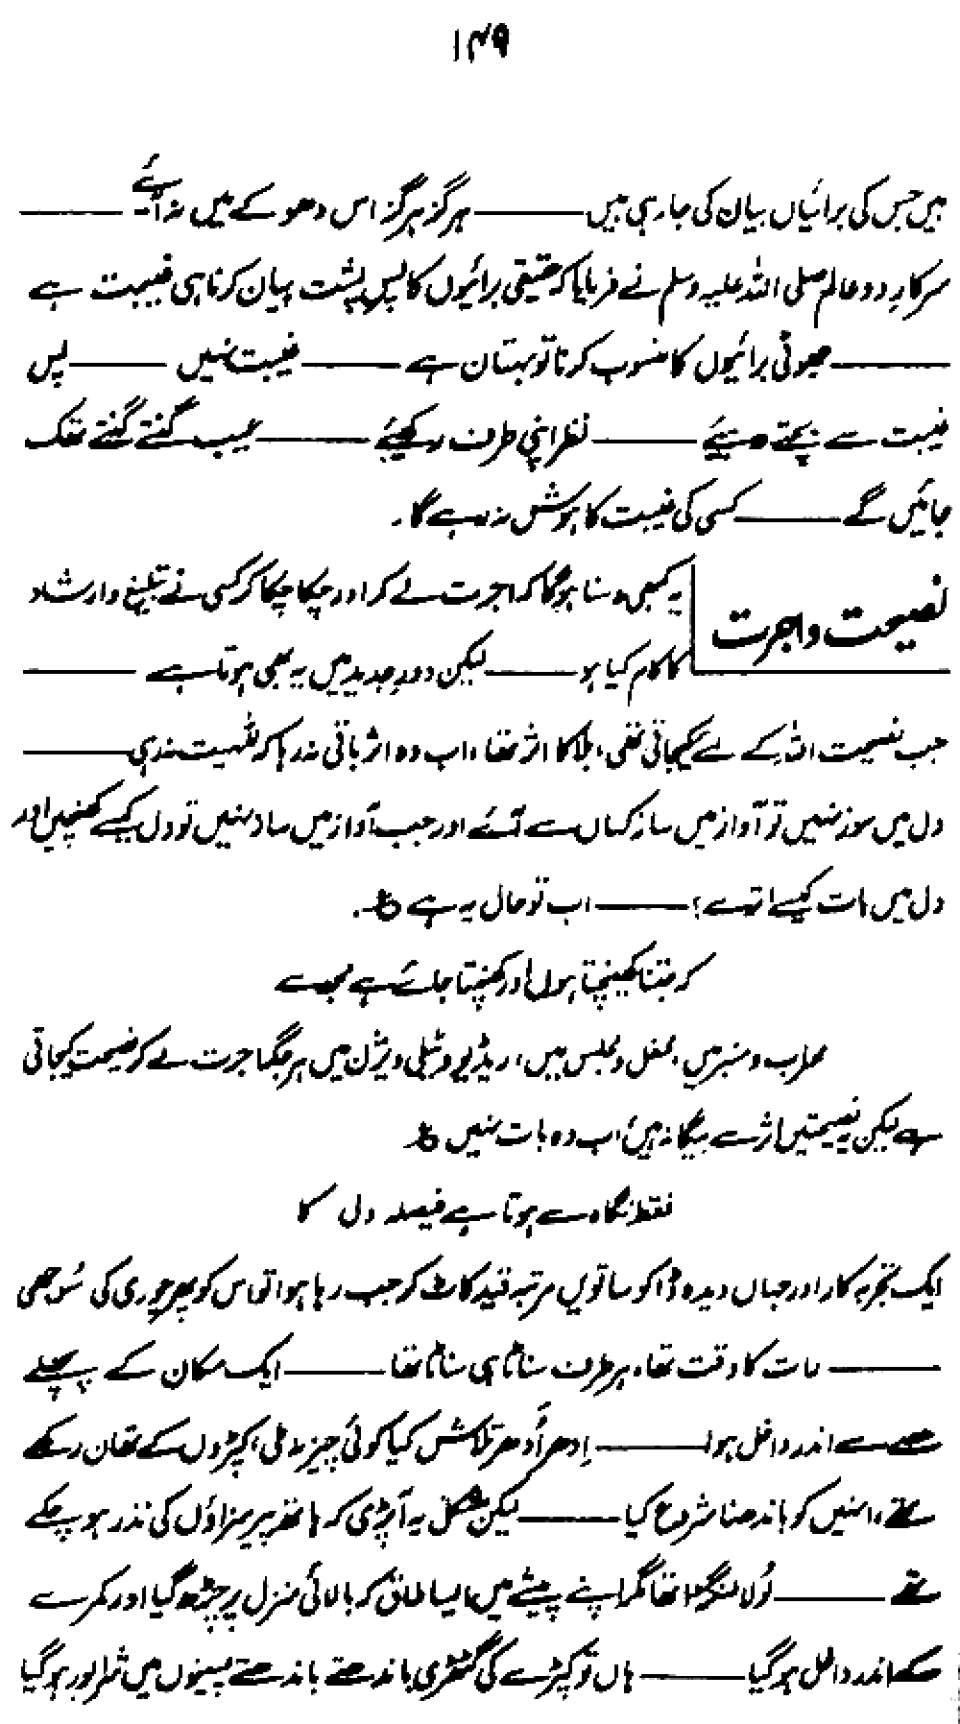 ۱۴۹
ہیں جس کی برائیاں بیان کی جا رہی ہیں ——— ہرگز ہرگز اس دھوکے میں نہ آئیے ———
سرکارِ دو عالم صلی اللہ علیہ وسلم نے فرمایا کہ حقیقی برائیوں کا پسِ پشت بیان کرنا ہی غیبت ہے
——— جھوٹی برائیوں کا منسوب کرنا تو بہتان ہے ——— غیبت نہیں ——— پس
غیبت سے بچتے رہیئے ——— نظر اپنی طرف رکھیئے ——— عیب گنتے گنتے تھک
جائیں گے ——— کسی کی غیبت کا ہوش نہ رہے گا۔
نصیحت و اجرت
یہ کبھی نہ سنا ہوگا کہ اجرت لے کر اور چکا چکا کر کسی نے تبلیغ و ارشاد
کا کام کیا ہو ——— لیکن دورِ جدید میں یہ بھی ہوتا ہے ———
جب نصیحت اللہ کے لئے کیجاتی تھی، بلا کا اثر تھا، اب وہ اثر باقی نہ رہا کہ للہیت نہ رہی ———
دل میں سوز نہیں تو آواز میں ساز کہاں سے آئے اور جب آواز میں ساز نہیں تو دل کیسے کھنچیں اور
دل میں بات کیسے اترے؟ ——— اب تو حال یہ ہے ؏
کہ جتنا کھینچتا ہوں اور کھنچتا جائے ہے مجھ سے
محراب و منبر میں، محفل و مجلس میں، ریڈیو و ٹیلی ویژن میں ہر جگہ اجرت لے کر نصیحت کیجاتی
ہے لیکن یہ نصیحتیں اثر سے بیگانہ ہیں، اب وہ بات نہیں ؏
فقط نگاہ سے ہوتا ہے فیصلہ دل کا
ایک تجربہ کار اور جہاں دیدہ ڈاکو ساتویں مرتبہ قید کاٹ کر جب رہا ہوا تو اس کو پھر چوری کی سُوجھی
——— رات کا وقت تھا، ہر طرف سناٹا ہی سناٹا تھا ——— ایک مکان کے پچھلے
حصے سے اندر داخل ہوا ——— اِدھر اُدھر تلاش کیا کوئی چیز نہ ملی، کپڑوں کے تھان رکھے
تھے، انہیں کو باندھنا شروع کیا ——— لیکن مشکل یہ آ پڑی کہ ہاتھ پیر سزاؤں کی نذر ہو چکے
تھے ——— لُولا لنگڑا تھا مگر اپنے پیشے میں ایسا طاق کہ بالائی منزل پر چڑھ گیا اور کمرے
کے اندر داخل ہو گیا ——— ہاں تو کپڑے کی گٹھڑی باندھتے باندھتے پسینوں میں شرابور ہو گیا